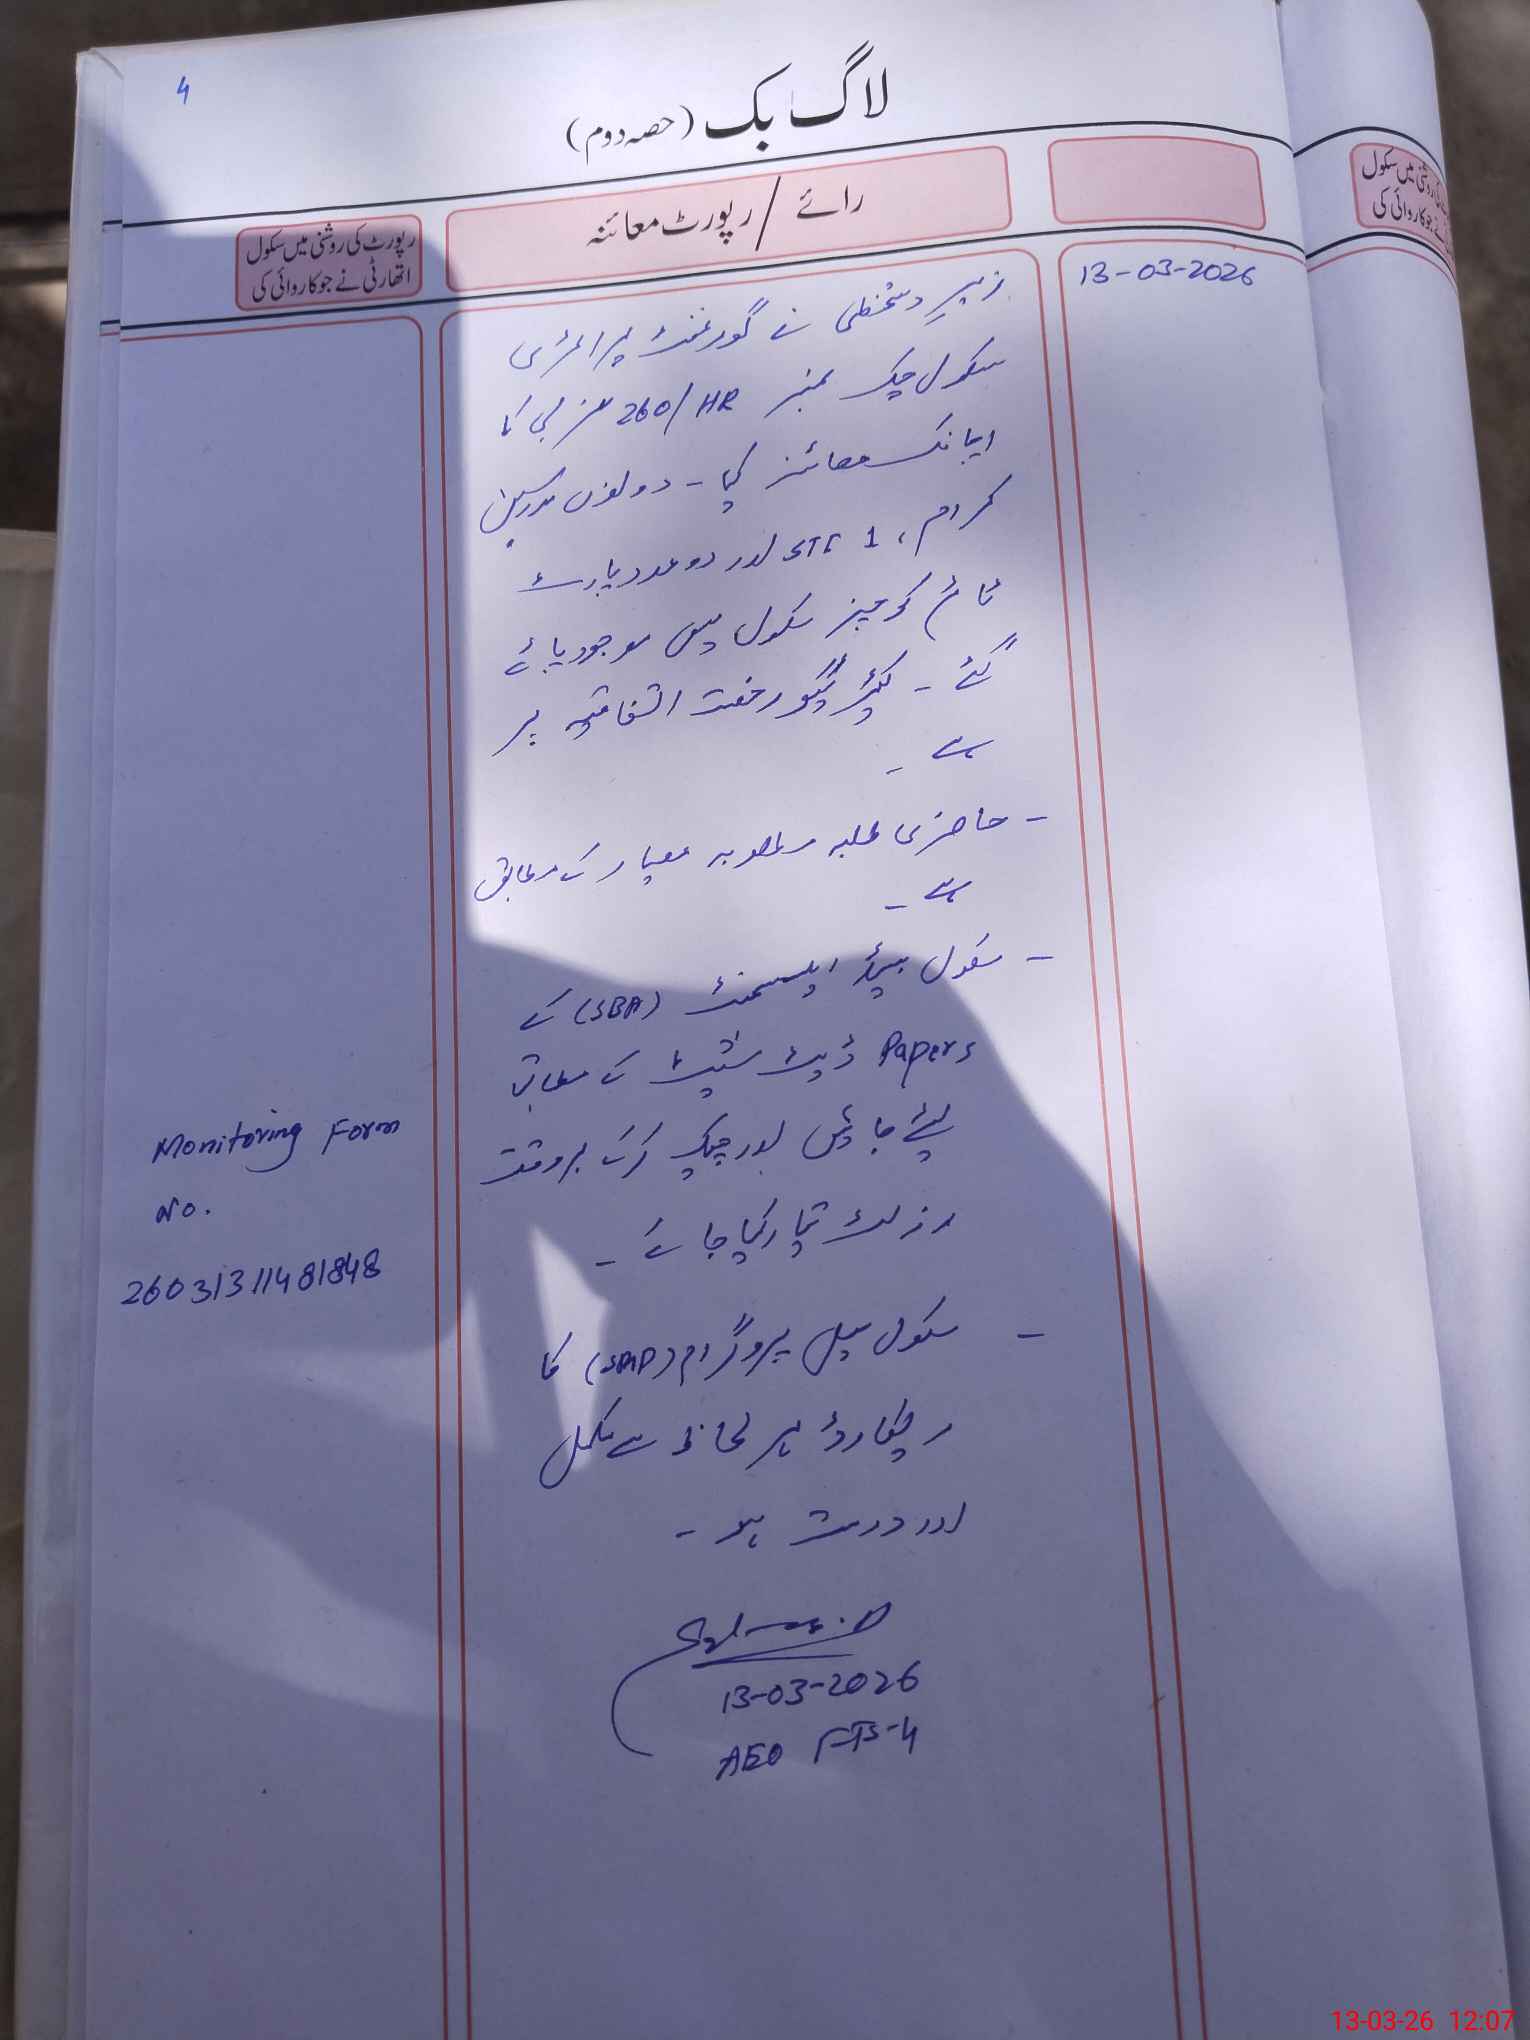 4
لاگ بک (حصہ دوم)
رائے / رپورٹ معائنہ
رپورٹ کی روشنی میں سکول
اتھارٹی نے جو کاروائی کی
13-03-2026
زیرِ دستخطی نے گورنمنٹ پرائمری
سکول چک نمبر 260/HR غربی کا
اچانک معائنہ کیا - دونوں مدرسین
کرام، 1 STI اور دو عدد پارٹ
ٹائم کوچز سکول میں موجود پائے
گئے - کیئر گیور رخصت اتفاقیہ پر
ہے -
- حاضری طلبہ مطلوبہ معیار کے مطابق
ہے -
- سکول بیسڈ اسیسمنٹ (SBA) کے
Papers ڈیٹ شیٹ کے مطابق
لیئے جائیں اور چیک کرکے بروقت
رزلٹ تیار کیا جائے -
- سکول میل پروگرام (SMP) کا
ریکارڈ ہر لحاظ سے مکمل
اور درست ہو -
13-03-2026
AEO FTS-4
Monitoring Form
No.
26031311481848
میں سکول
جو کاروائی کی
13-03-26 12:07